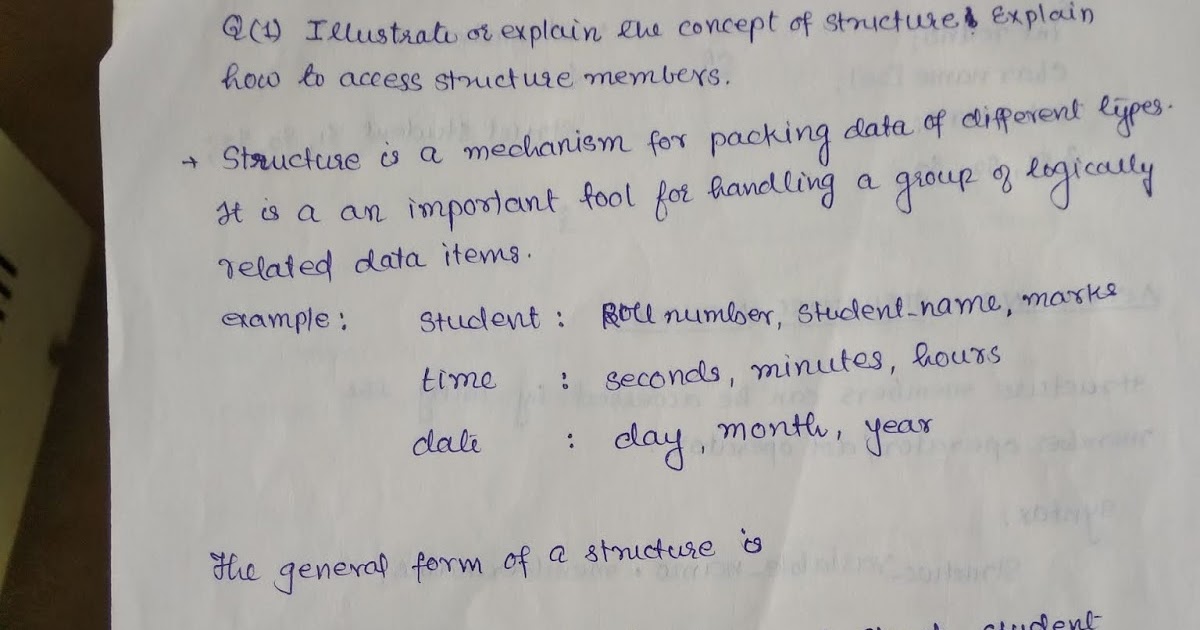 Q(1) Illustrate or explain the concept of structure. Explain
how to access structure members.
→ Structure is a mechanism for packing data of different types.
It is a an important tool for handling a group of logically
related data items.
example: Student : Roll number, Student_name, marks
time : seconds, minutes, hours
date : day, month, year
The general form of a structure is
student